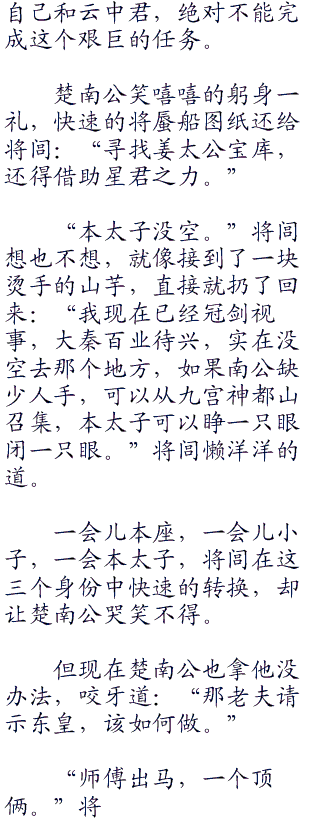 自己和云中君，绝对不能完
成这个艰巨的任务。
楚南公笑嘻嘻的躬身一
礼，快速的将蜃船图纸还给
将闾：“寻找姜太公宝库，
还得借助星君之力。”
“本太子没空。”将闾
想也不想，就像接到了一块
烫手的山芋，直接就扔了回
来：“我现在已经冠剑视
事，大秦百业待兴，实在没
空去那个地方，如果南公缺
少人手，可以从九宫神都山
召集，本太子可以睁一只眼
闭一只眼。”将闾懒洋洋的
道。
一会儿本座，一会儿小
子，一会本太子，将闾在这
三个身份中快速的转换，却
让楚南公哭笑不得。
但现在楚南公也拿他没
办法，咬牙道：“那老夫请
示东皇，该如何做。”
“师傅出马，一个顶
俩。”将